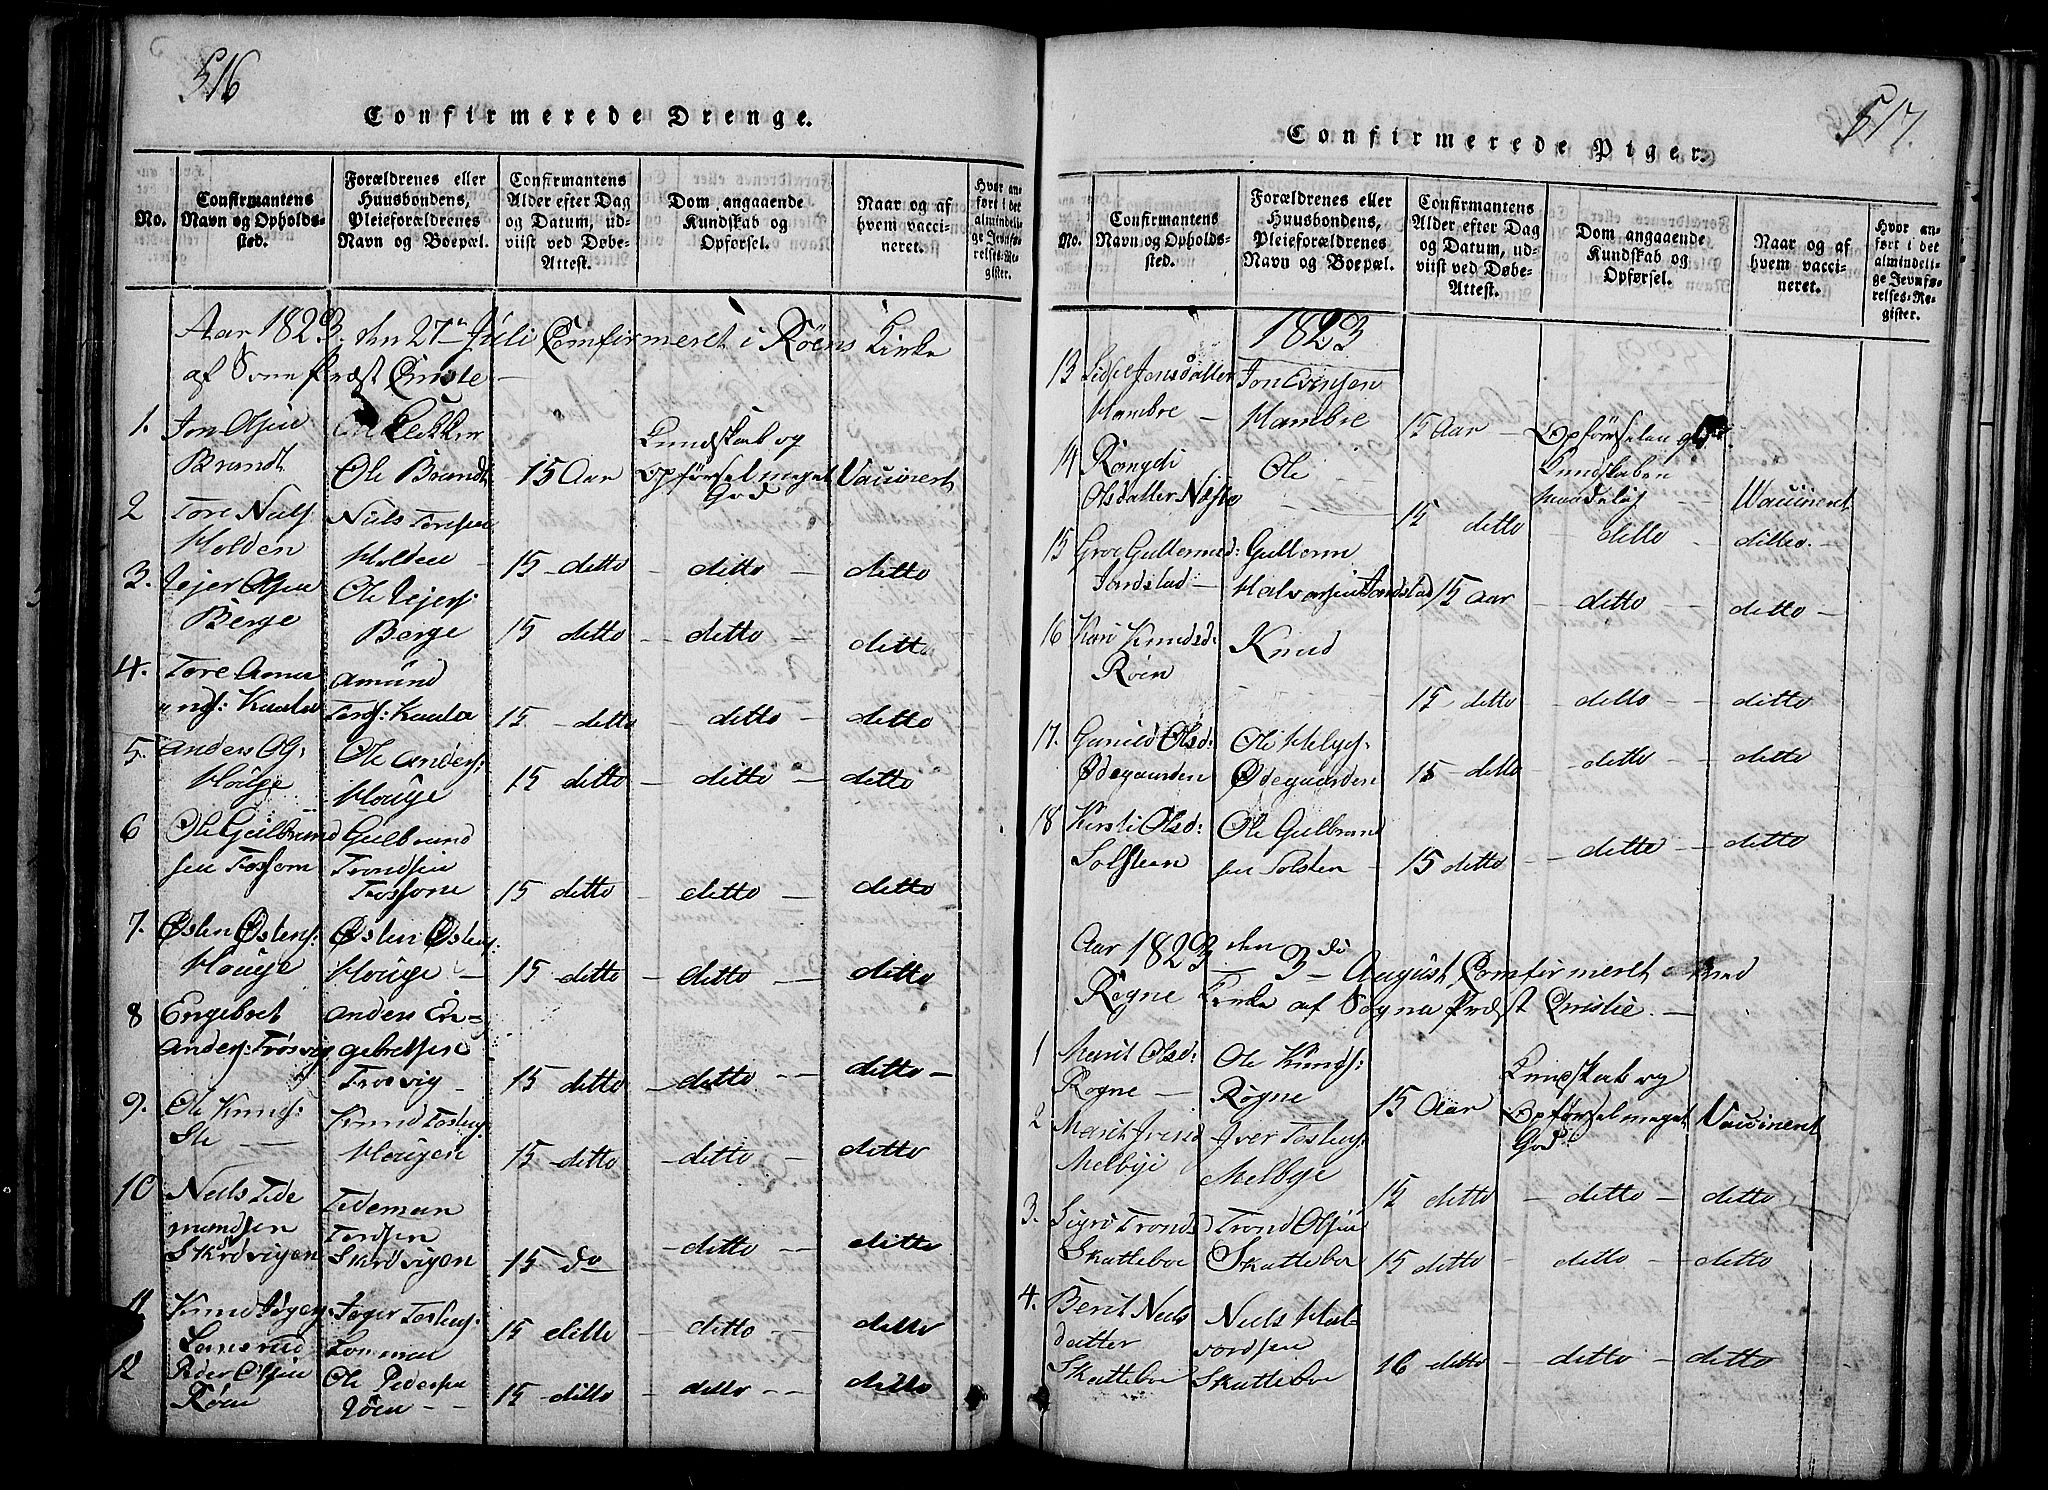 516
Confirmerede Drenge.
No.
Confirmantens Navn og Opholdssted.
Forældrenes eller Huusbondens, Pleieforældrenes Navn og Boepæl.
Confirmantens Alder efter Dag og Datum, udviist ved Døbe-Attest.
Dom angaaende Kundskab og Opførsel.
Naar og af hvem vaccineret.
Hvor anført i det almindelige Jevnførelses-Register.
Aar 1823. den 27de Juli Comfirmeret i Røens Kirke
af Præst
1. Jon Olsen
Brandt
Ole Brandt
15 Aar
Kundskab og
Opførsel meget
God
Vaccineret
2 Tore Nielss
Holden
Niels Toresen
Holden
15 ditto – ditto – ditto
3. Olsen
Berge
Ole
Berge
15 ditto – ditto – ditto
4. Tore Amu
nds: Kaula
Amund
Tords: Kaula
15 ditto – ditto – ditto
5. Anders Ols:
Houge
Ole Anders:
Houge
15 ditto – ditto – ditto
6 Ole Gulbrand
sen Fossom
Gulbrand
Trondsen
Fossome
15 ditto – ditto – ditto
7. Østen Østens:
Houge
Østen Østens:
Houge –
15 ditto – ditto – ditto
8 Engebret
Anders: Frøsvig
Anders En-
gebretsen
Frosvig –
15 ditto – ditto – ditto –
9. Ole Knuds:
Ste –
Knud Tostens:
Hougen
15 – ditto – ditto – ditto
10 Niels Tide
mandsen
Skrøvigen
Tideman
Tordsen
Skrøvigen
15 do – ditto – ditto
11 Knud
Lomen
15 ditto – ditto – ditto
12 Peder Olsen
Røen
Ole Pedersen
Røen – –
15 – ditto – ditto – – ditto
517.
Confirmerede Piger.
No.
Confirmantens Navn og Opholdssted.
Forældrenes eller Huusbondens, Pleieforældrenes Navn og Boepæl.
Confirmantens Alder efter Dag og Datum, udviist ved Døbe-Attest.
Dom angaaende Kundskab og Opførsel.
Naar og af hvem vaccineret.
Hvor anført i det almindelige Jevnførelses-Register.
1823
13 Jonsdatter
Hambre –
Jon Evensen
Hambre
15 Aar –
Opførselen god
Kundskaben
maadelig
14 Rongdi
Olsdatter
Ole
15 ditto – ditto
Vaccineret
15 Groe Gulbrand:
Jordstad –
Halvorsen Jordstad
15 Aar – ditto – ditto –
ditto –
16 Kari Knudsd:
Røen
Knud
15 ditto – ditto – ditto
17. Gunild Olsd:
Ødegaarden
Ole Helges:
Ødegaarden
15 – ditto – ditto – ditto
18 Kirsti Olsd:
Solsteen
Ole Gulbrand
sen Solsten –
15 ditto – ditto – ditto
Aar 1823 den 3die August Comfirmeret
Rogne Kirke af Sogne Præst Christie. –
1 Marit Olsd:
Rogne –
Ole Knuds:
Rogne
15 Aar
Kundskab og
Opførsel meget
God
Vaccineret
2 Marit Iversd
Melbye
Iver Tostens:
Melbye
15 ditto – ditto – ditto
3. Sigrø Tronds
Skatteboe
Trond Olsen
Skatteboe
15 ditto – ditto – ditto
4. Berit Niels
datter
Skatteboe
Niels Hal-
vordsen
Skatteboe
16 ditto – ditto – ditto